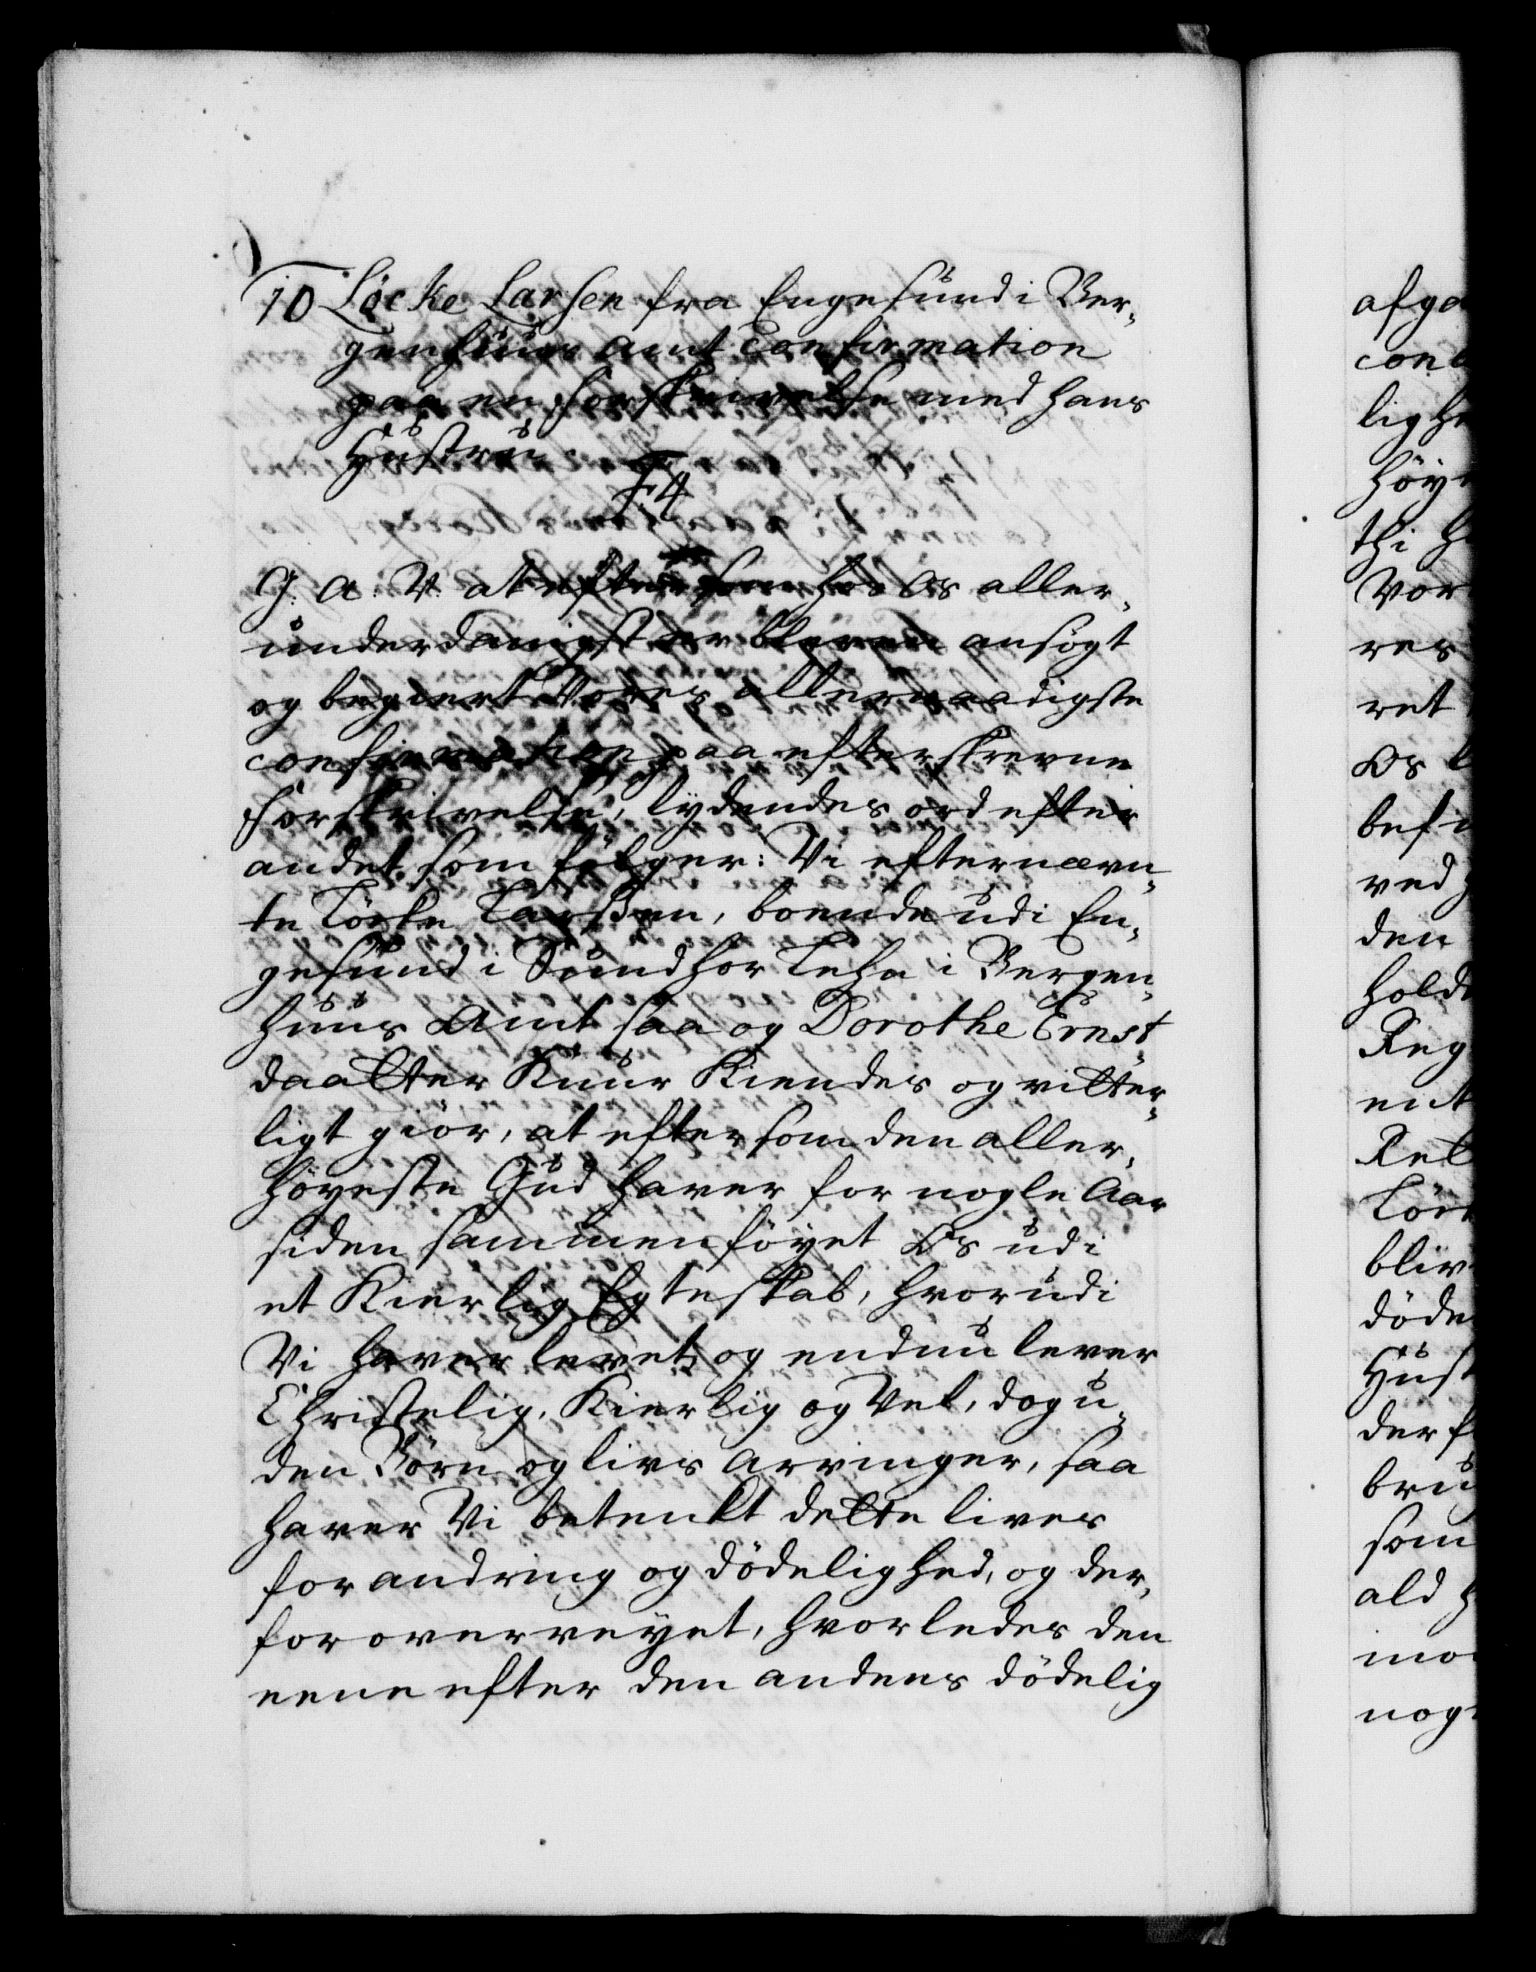 10 Löcke Larsen fra Engesund i Ber¬
genhuus Amt Confirmation
paa en Forskrivelse med hans
Hustru
F4
G. A. V. at eftersom hos Os aller¬
underdanigst er bleven ansögt
og begiert Vores allernaadigste
confirmation paa efterskrevne
Forskrivelse, lydendes ord efter
andet som fölger: Vi efternævn¬
te Löcke Larssen, boende udi En¬
gesund i Sundhor Lehn i Bergen¬
huus Amt saa og Dorothe Ernst
daatter Kuur Kiendes og vitter¬
ligt giör, at eftersom den aller¬
höyeste Gud haver for nogle Aar
siden sammenföyet Os udi
et Kierlig Egteskab, hvorudi
Vi haver levet og endnu lever
Christelig, Kierlig og Vel, dog u¬
den Börn og livs Arvinger, saa
haver Vi betenkt dette lives
forandring og dödelighed, og der¬
for overveyet, hvorledes den
eene efter den andens dödelig
afga
con
lighe
höy
thi h
Vor
res
ret
Os
befi
ved
den
hold
Reg
ent
Ret
Löc
bliv
döde
Hust
derf
bru
som
ald h
mo
nog